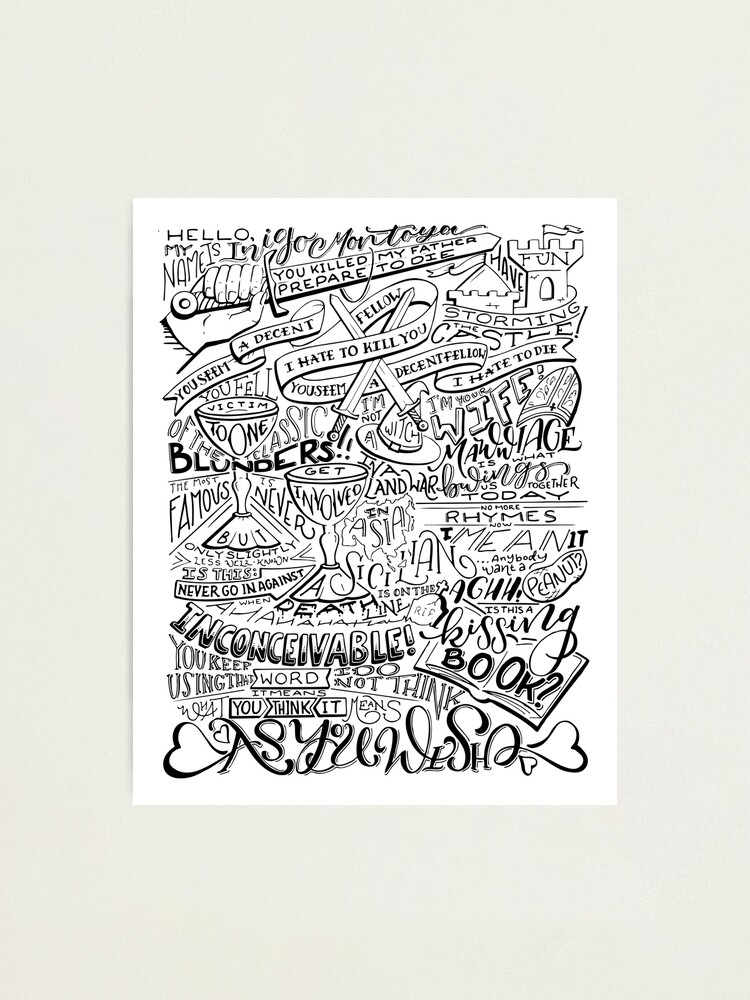 HELLO,
MY NAME IS Inigo Montoya
YOU KILLED MY FATHER
PREPARE TO DIE
HAVE FUN
STORMING
THE
CASTLE!
YOU SEEM A DECENT FELLOW
I HATE TO KILL YOU
YOU SEEM A DECENT FELLOW
I HATE TO DIE
YOU FELL
VICTIM
TO ONE
OF THE CLASSIC
BLUNDERS!!
I'M
NOT
A WITCH
I'M YOUR
WIFE!
MAWWIAGE
IS WHAT
bwings
US TOGETHER
TODAY
THE MOST
FAMOUS IS NEVER
GET
INVOLVED
IN A
LAND WAR
IN
ASIA
BUT
ONLY SLIGHTLY
LESS WELL-KNOWN
IS THIS:
NEVER GO IN AGAINST
A SICILIAN
WHEN
DEATH
IS ON THE
LINE
AHAHAHAHA
R.I.P.
NO MORE
RHYMES
NOW
I MEAN IT
...Anybody
want a
PEANUT?
AGHH!
IS THIS A
kissing
BOOK?
INCONCEIVABLE!
YOU KEEP
USING THAT WORD
I DO
NOT THINK
IT MEANS
WHAT YOU THINK IT MEANS
AS YOU WISH